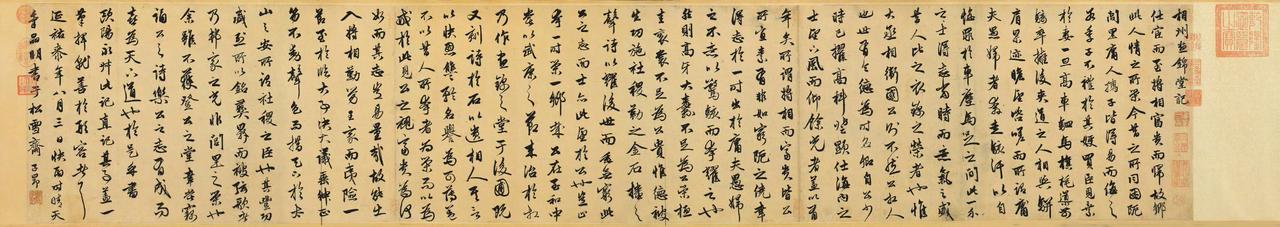 相州晝錦堂記
仕宦而至將相富貴而歸故鄉
此人情之所榮今昔之所同困阨
閭里庸人孺子皆得易而侮之
若季子不禮於其嫂買臣見棄
於妻一旦高車駟馬旗旄導前
騎卒擁後夾道之人相與駢
肩累迹瞻望咨嗟而所謂庸
夫愚婦者奔走駭汗以自
悔罪於車塵馬足之間此一介
之士得志當時而意氣之盛
昔人比之衣錦之榮者也惟
大丞相衛國公則不然公相人
也世有令德為時名卿自公少
時已擢高科登顯仕海內之
士聞下風而仰餘光者蓋亦有
年矣所謂將相而富貴皆公
所宜素有非如窮阨之僥幸
得志於一時出於庸夫愚婦
之不意以驚駭而夸耀之也
然則高牙大纛不足為公榮桓
圭袞裳不足為公貴惟德被
生功施社稷勒之金石播之
聲詩以耀後世而垂無窮此
公之志而士亦以此望於公也豈止
夸一時榮一鄉哉公在至和中
嘗以武康之節來治於相
乃作晝錦之堂于後圃既
又刻詩於石以遺相人其言
以快恩讎矜名譽為可薄蓋
不以昔人所夸者為榮而以為
戒於此見公之視富貴為何
如而其志豈易量哉故能出
入將相勤勞王家而夷險一
節至於臨大事決大議垂紳正
笏不動聲色而措天下於泰
山之安所謂社稷之臣也其豐功
盛烈所以銘彝鼎而被弦歌者
乃邦家之光非閭里之榮也
余雖不獲登公之堂幸嘗竊
誦公之詩樂公之志有成而
喜為天下道也於是乎書
歐陽永叔此記直記其事蓋一
發揮就善於形容
延祐年八月三日快雨時晴天
品明書于松雪齋子昂